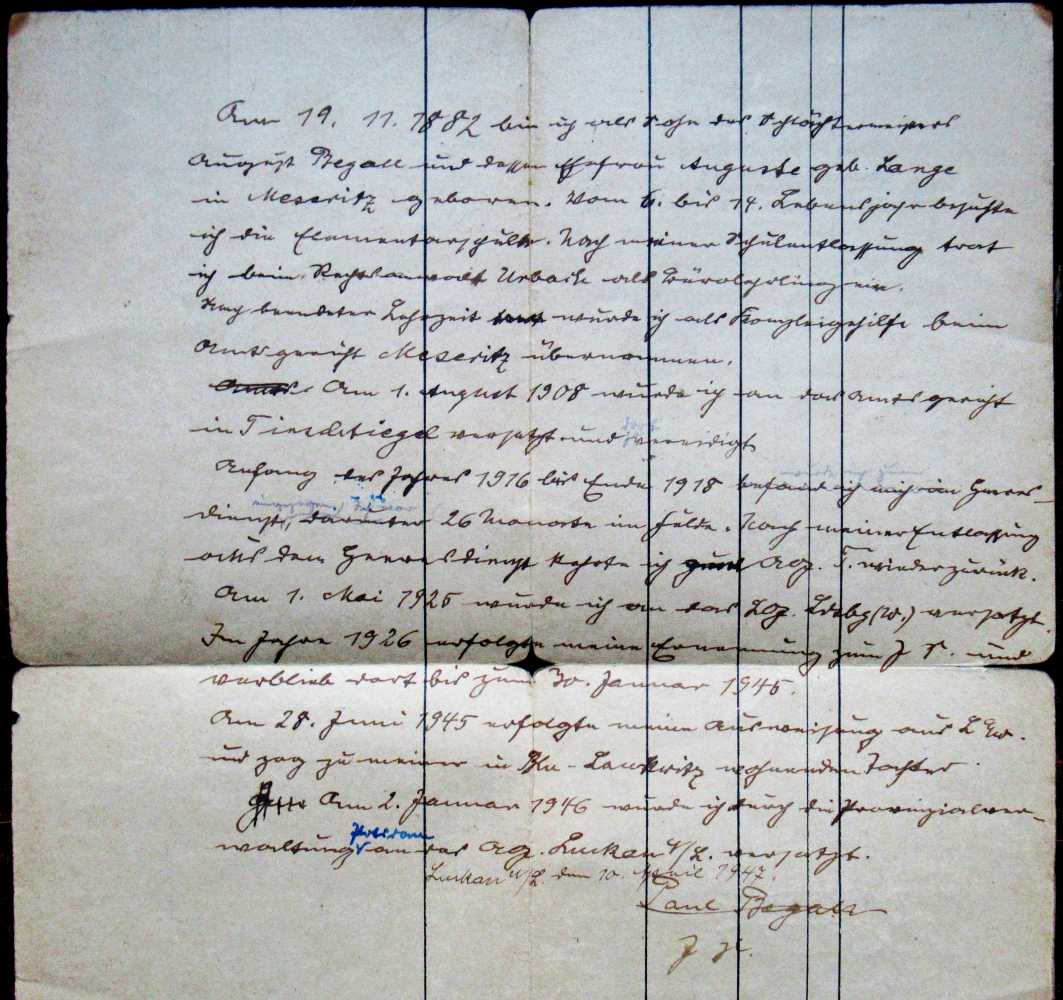 Am 19. 11. 1882 bin ich als Sohn des Schlächtermeisters
August Begall und dessen Ehefrau Auguste geb. Lange
in Meseritz geboren. Vom 6. bis 14. Lebensjahr besuchte
ich die Elementarschule. Nach meiner Schulentlassung trat
ich beim Rechtsanwalt Urbach als Bürolehrling ein.
Nach beendeter Lehrzeit wurde ich als Kanzleigehilfe beim
Amtsgericht Meseritz übernommen.
Am 1. August 1908 wurde ich an das Amtsgericht
in Tirschtiegel versetzt und vereidigt
Anfang des Jahres 1916 bis Ende 1918 befand ich mich im Heeres-
dienst, darunter 26 Monate im Felde. Nach meiner Entlassung
aus dem Heeresdienst kehrte ich AG. T. wieder zurück.
Am 1. Mai 1925 wurde ich an das LG. Ldsbg (W.) versetzt.
Im Jahre 1926 erfolgte meine Ernennung zum J S. und
verblieb dort bis zum 30. Januar 1945.
Am 28. Juni 1945 erfolgte meine Ausweisung aus L
und zog zu meiner in Bln-Lankwitz wohnenden Tochter.
Am 2. Januar 1946 wurde ich durch die Provinzialver-
Potsdam
waltung an das AG. Luckau N/L. versetzt.
Luckau N/L den 10. April 1947.
Paul Begall